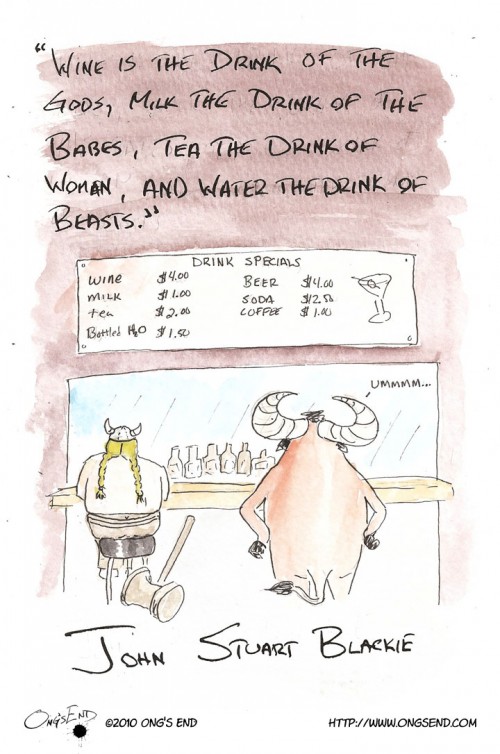 "Wine is the Drink of the
Gods, Milk the Drink of the
Babes, Tea the Drink of
Woman, and Water the Drink of
Beasts."
DRINK SPECIALS
Wine $4.00
milk $1.00
tea $2.00
Bottled H2O $1.50
BEER $4.00
SODA $2.50
COFFEE $1.00
UMMMM...
John Stuart Blackie
Ong's End
©2010 ONG'S END
HTTP://WWW.ONGSEND.COM